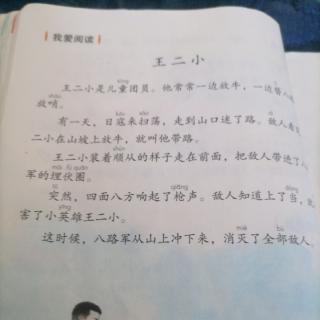 我爱阅读
王二小
tóng
王二小是儿童团员。他常常一边放牛，一边替
shào
放哨。
kòu sǎo dí
有一天，日寇来扫荡，走到山口迷了路。敌人看
二小在山坡上放牛，就叫他带路。
shùn
王二小装着顺从的样子走在前面，把敌人带进了
mái fú quān
军的埋伏圈。
tū qiāng dàng
突然，四面八方响起了枪声。敌人知道上了当，
yīng
害了小英雄王二小。
miè bù
这时候，八路军从山上冲下来，消灭了全部敌人